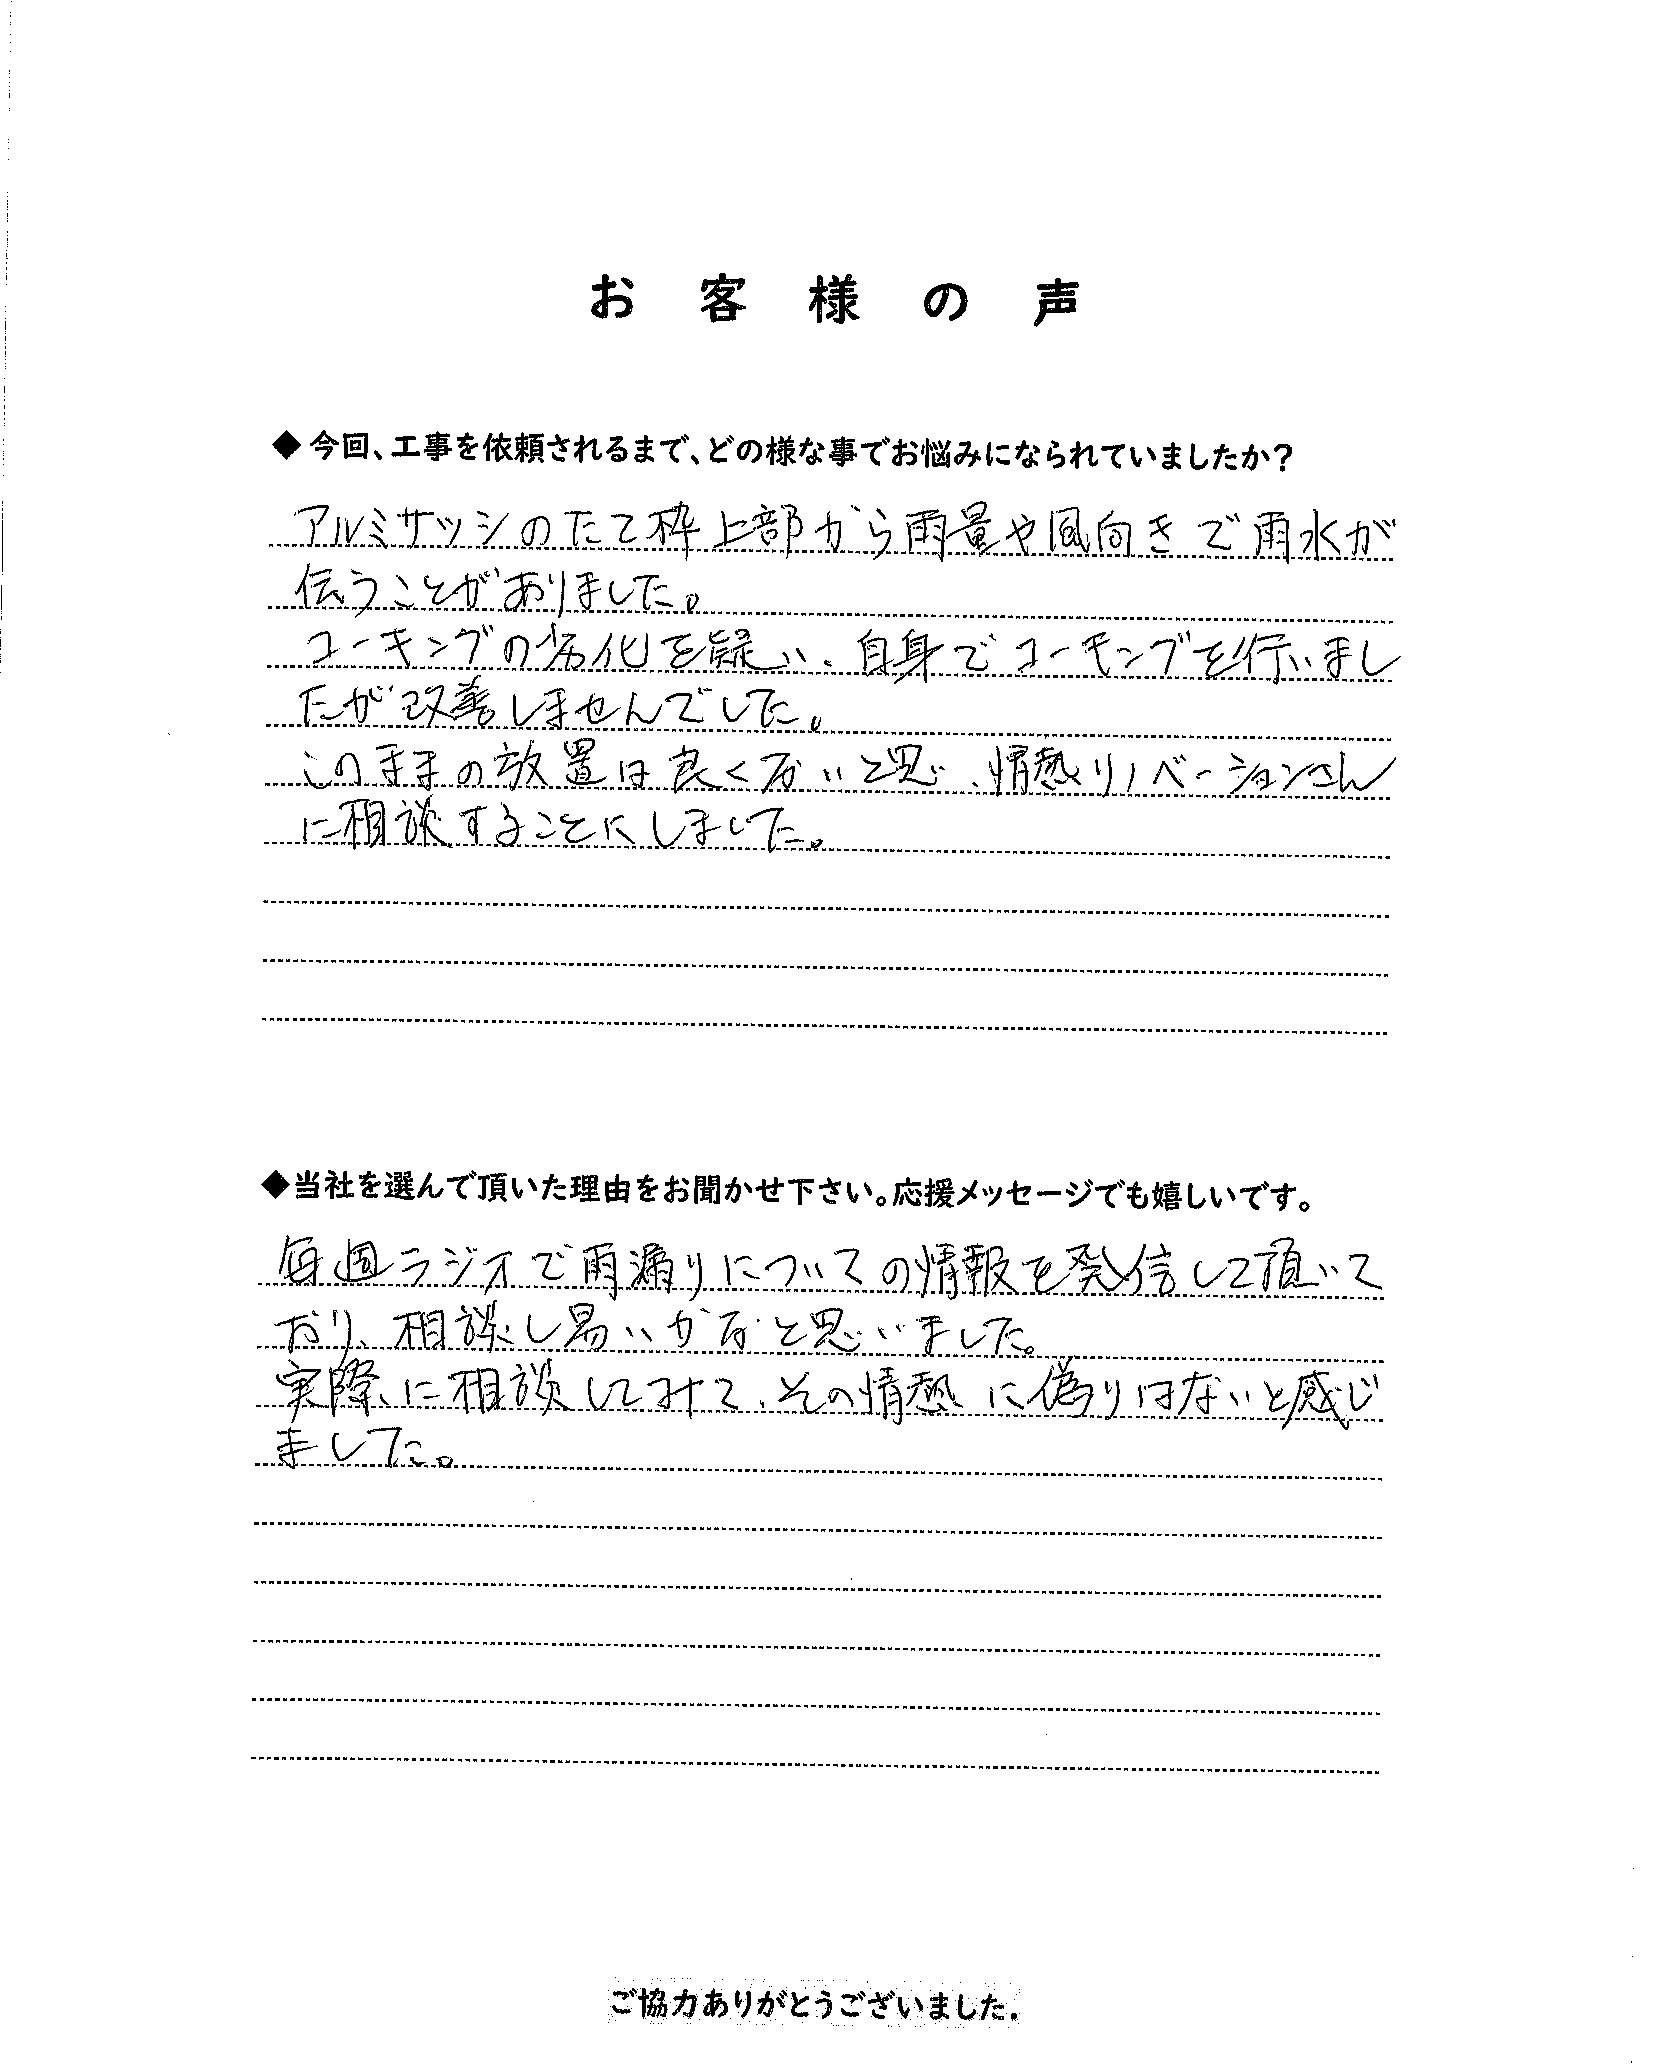 お客様の声
◆今回、工事を依頼されるまで、どの様な事でお悩みになられていましたか?
アルミサッシのたて枠上部から雨量や風向きで雨水が
伝うことがありました。
コーキングの劣化を疑い、自身でコーキングを行いまし
たが改善しませんでした。
このままの放置は良くないと思い、情熱リノベーションさん
に相談することにしました。
◆当社を選んで頂いた理由をお聞かせ下さい。応援メッセージでも嬉しいです。
毎週ラジオで雨漏りについての情報を発信して頂いて
おり、相談し易いかなと思いました。
実際に相談してみて、その情熱に偽りはないと感じ
ました。
ご協力ありがとうございました.